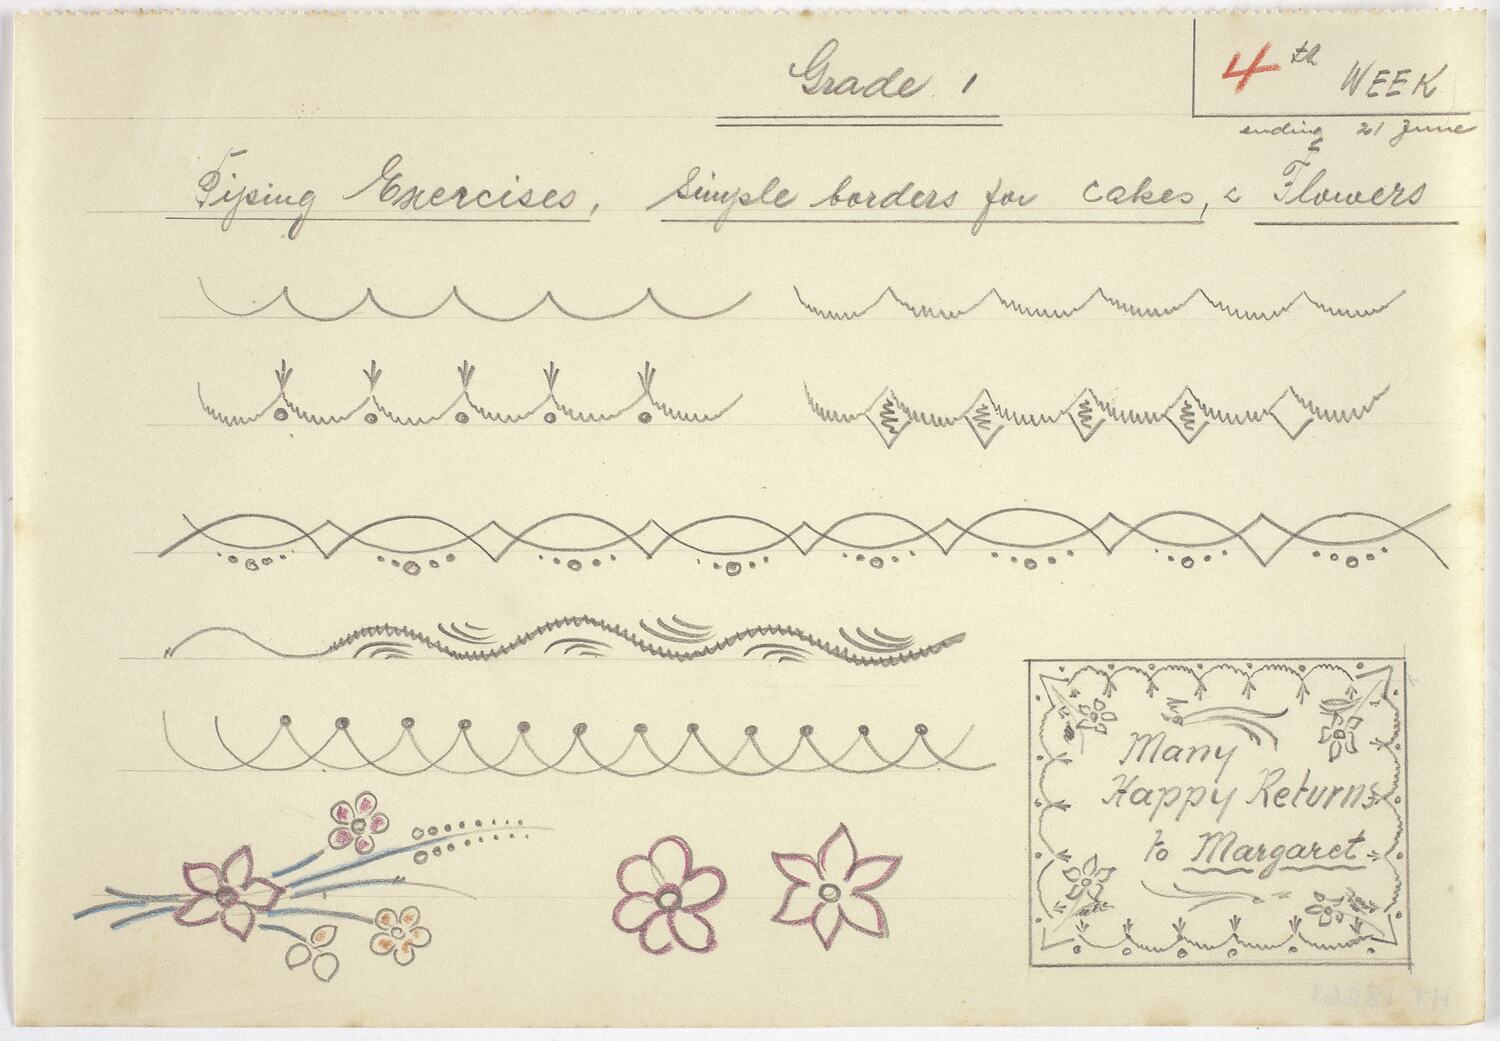 Grade 1
4th WEEK
ending 21 June
Piping Exercises, Simple borders for cakes, & Flowers
Many
Happy Returns
to Margaret